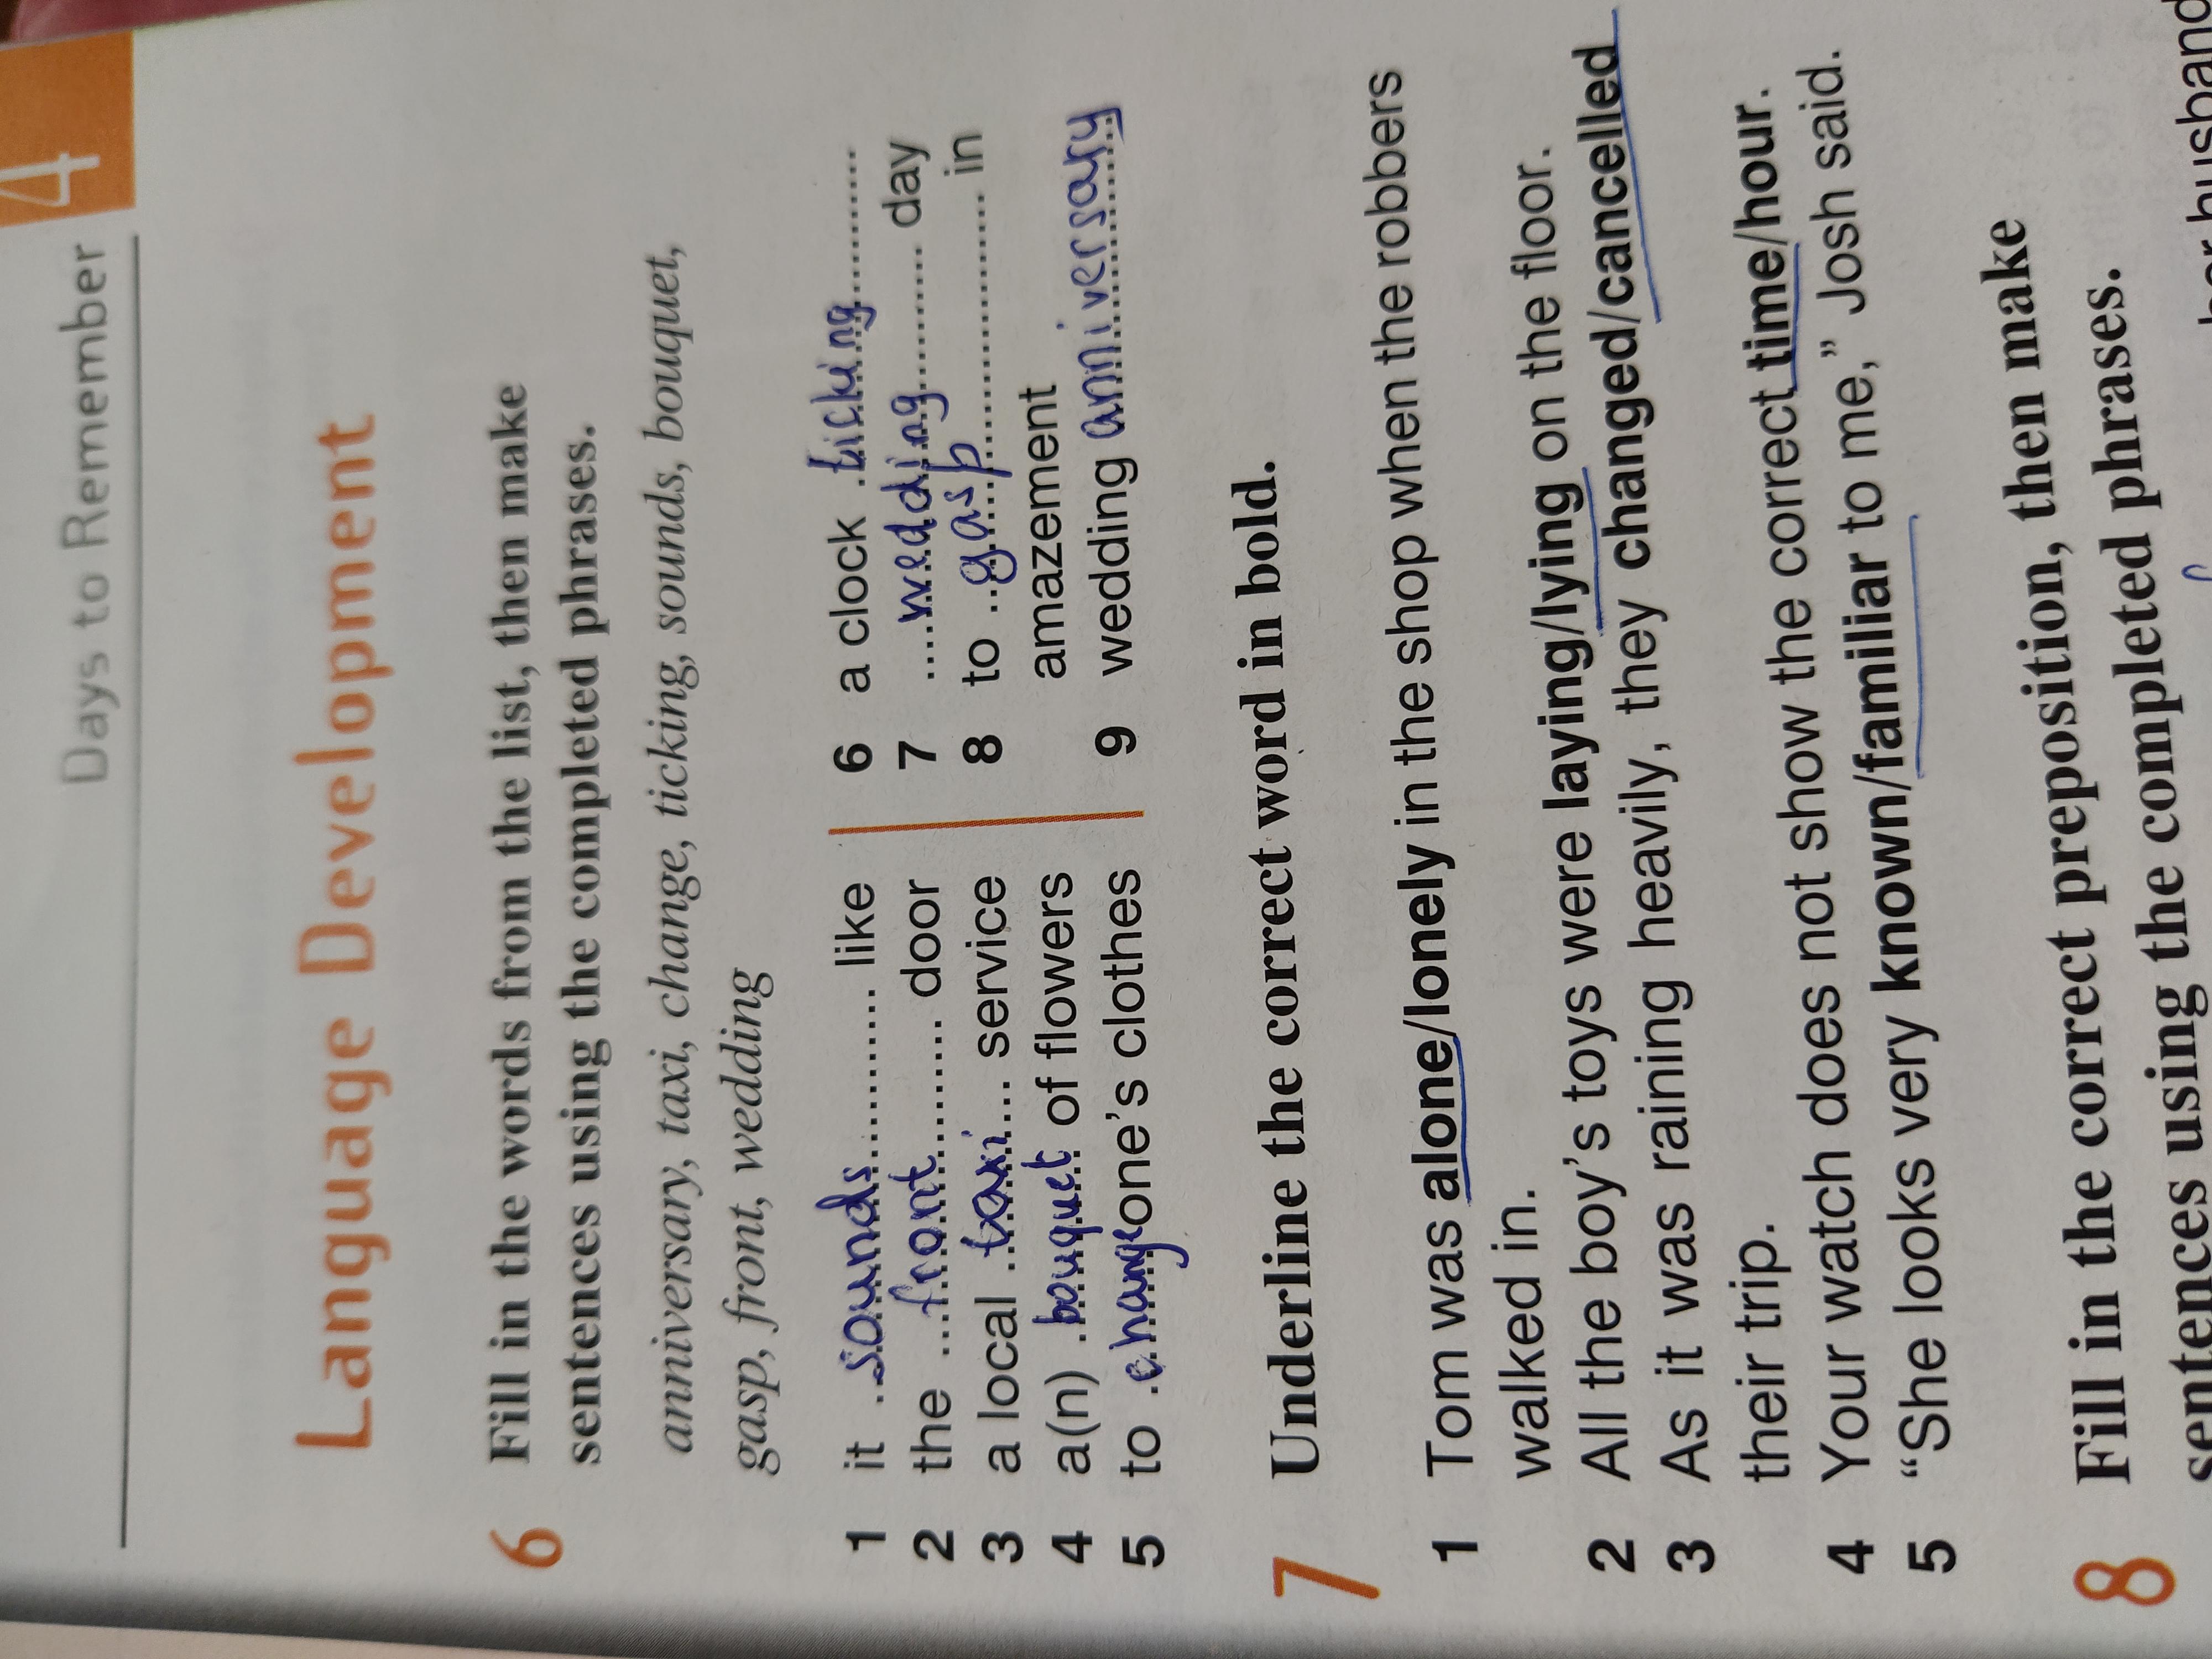 Days to Remember 4
Language Development
6 Fill in the words from the list, then make
sentences using the completed phrases.
anniversary, taxi, change, ticking, sounds, bouquet,
gasp, front, wedding
1 it ..sounds.......... like
2 the ...front.......... door
3 a local ..taxi.... service
4 a(n) .bouquet of flowers
5 to .change one's clothes
6 a clock .ticking..........
7 ....wedding.......... day
8 to ..gasp.................. in
amazement
9 wedding anniversary
7 Underline the correct word in bold.
1 Tom was alone/lonely in the shop when the robbers
walked in.
2 All the boy's toys were laying/lying on the floor.
3 As it was raining heavily, they changed/cancelled
their trip.
4 Your watch does not show the correct time/hour.
5 “She looks very known/familiar to me,” Josh said.
8 Fill in the correct preposition, then make
sentences using the completed phrases.
her husband